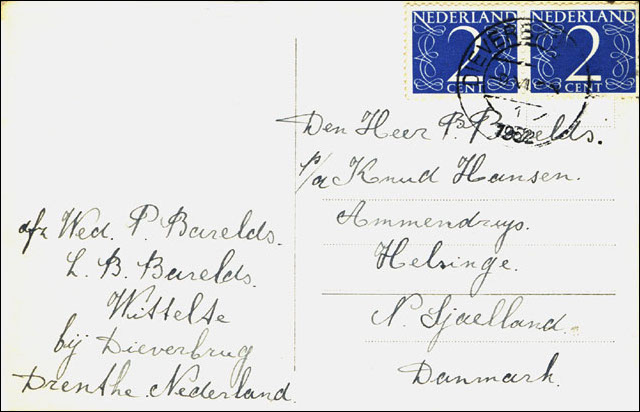 NEDERLAND NEDERLAND
2 2
CENT CENT
DIEVERBRUG
1952
Den Heer B. Barelds.
p/a Knud Hansen.
Ammendrup.
Helsinge.
N. Sjaelland.
Danmark.
afz Wed. P. Barelds.
L. B. Barelds.
Wittelte
bij Dieverbrug
Drenthe. Nederland.